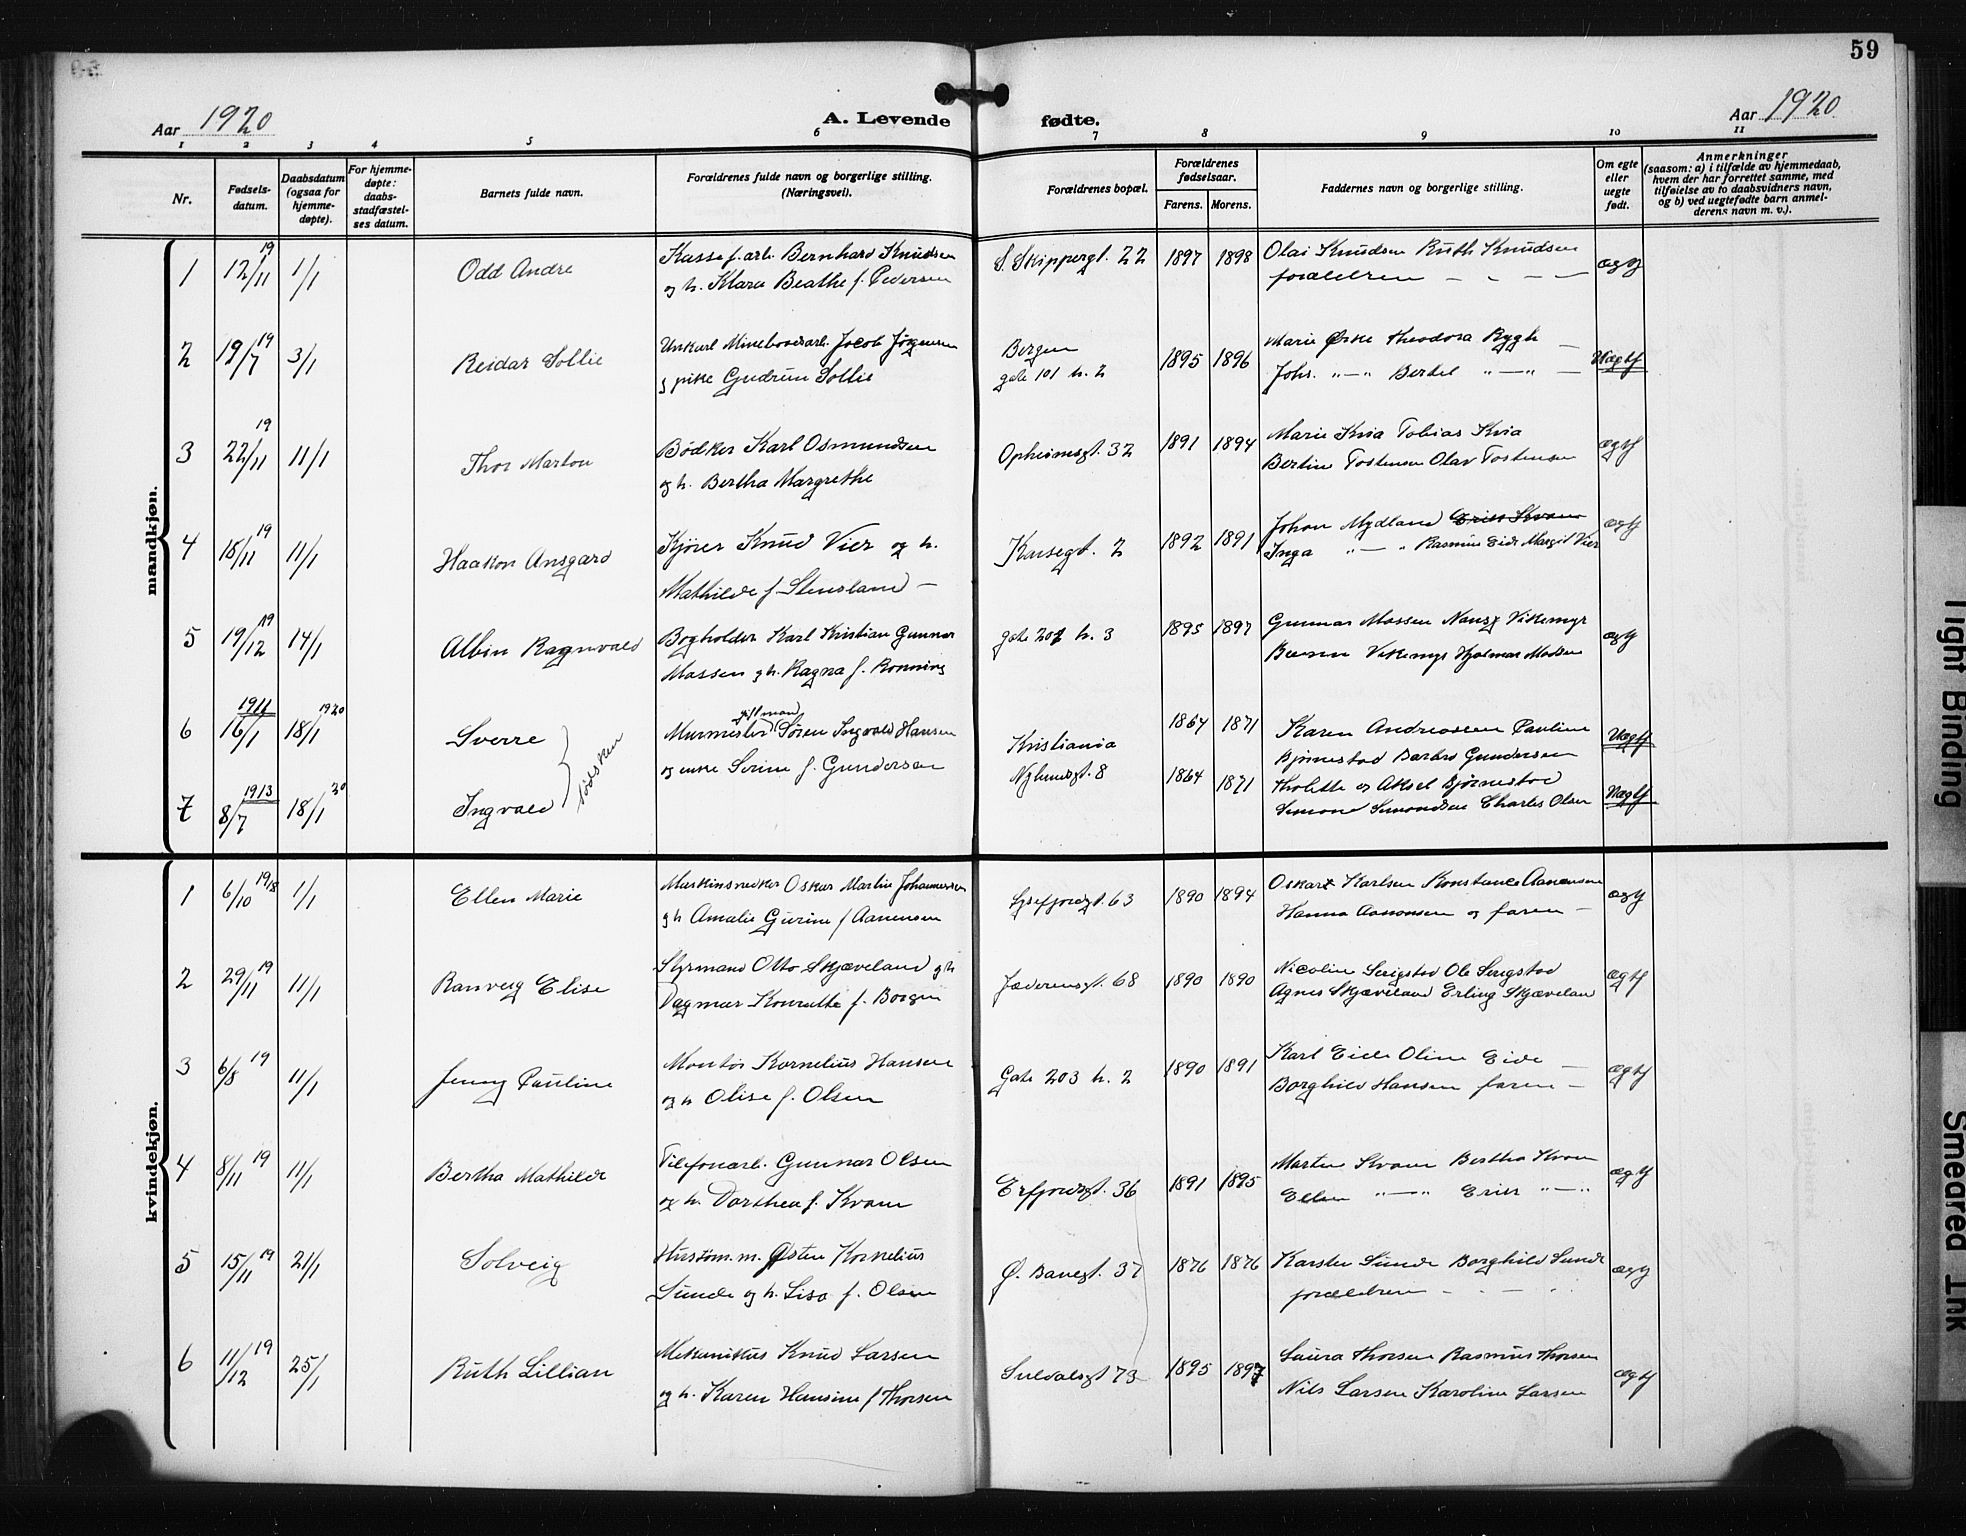 59
Aar 1920
A. Levende fødte.
Aar 1920
1 2 3 4 5 6 7 8 9 10 11
Nr.
Fødselsdatum.
Daabsdatum (ogsaa for hjemmedøpte).
For hjemmedøpte: daabsstadfæstelses datum.
Barnets fulde navn.
Forældrenes fulde navn og borgerlige stilling. (Næringsvei).
Forældrenes bopæl.
Forældrenes fødselsaar.
Farens. Morens.
Faddernes navn og borgerlige stilling.
Om egte eller uegte født.
Anmerkninger
(saasom: a) i tilfælde av hjemmedaab, hvem der har forrettet samme, med tilføielse av to daabsvidners navn, og b) ved uegtefødte barn anmelderens navn m. v.).
mandkjøn.
1 12/11 19 1/1 Odd Andre Bernhard Knudsen S. Skippergt. 22 1897 1898 Olai Knudsen Ruth Knudsen ægtf
og h. Klara Beathe f. Pedersen forældrene
2 19/7 19 3/1 Reidar Sollie Jacob Jørgensen Bergen 1895 1896 Marie Theodora Rygh Uægtf
pike Gudrun Sollie gate 101 h. 2 Johs. " — " Bertel " — "
3 22/11 19 11/1 Thor Marton Bødker Karl Osmundsen Opheimsgt. 32 1891 1894 Marie Kvia Tobias Kvia ægtf
og h. Bertha Margrethe Bertine Tostensen Olav Tostensen
4 18/11 19 11/1 Haakon Ansgard Kjører Knud Vier og h. Karsegt. 2 1892 1891 Johan Mydland ægtf
Mathilde f. Stensland Inga " — " Rasmus Eide Margit Vier
5 19/12 19 14/1 Albin Ragnvald Bogholder Karl Kristian Gunnar gate 201 h. 3 1895 1897 Gunnar Massen Vikemyr ægtf
Massen og h. Ragna f. Ronning Vikemyr Hjalmar Madsen
6 16/1 1911 18/1 1920 Sverre Murmester gift mand Søren Ingvald Hansen Kristiania 1864 1871 Karen Andreassen Pauline Uægtf
og enke Serine f. Gundersen Nylundsgt. 8 Bjørnestad Barbro Gundersen
7 8/7 1913 18/1 20 Ingvald Sødsken 1864 1871 Tholette og Aksel Bjørnestad Uægtf
Simonsen Charles Olsen
kvindekjøn.
1 6/10 1918 1/1 Ellen Marie Maskinsnedker Oskar Martin Johannessen Lysefjordgt. 63 1890 1894 Oskar Karlsen Konstance Aanensen ægtf
og h Amalie Gurine f Aanensen Hanna Aanonsen og faren
2 29/11 19 11/1 Ranveig Elise Styrmand Otto Skjæveland og h Jæderensgt. 68 1890 1890 Nicoline Serigstad Ole Serigstad ægtf
Dagmar f. Borgen Agnes Skjæveland Erling Skjævelan
3 6/8 19 11/1 Jenny Pauline Montør Kornelius Hansen Gate 203 h. 2 1890 1891 Karl Eide Oline Eide ægtf
og h Olise f. Olsen Borghild Hansen faren
4 8/11 19 11/1 Bertha Mathilde Telefonarb. Gunnar Olsen Erfjordsgt. 36 1891 1895 Martin Kvam Bertha Kvam ægtf
og h. Dorthea f. Kvam Ellen " — " Erik " — "
5 15/11 19 21/1 Solveig Østen Kornelius Ø. Banegt. 37 1876 1876 Karsten Sunde Borghild Sunde ægtf
Sunde og h. Lisa f. Olsen forældrene
6 11/12 19 25/1 Ruth Lillian Mekanikus Knud Larsen Suldalsgt 73 1895 1897 Laura Thorsen Rasmus Thorsen ægtf
og h. Karen Hansine f Thorsen Nils Larsen Karoline Larsen
Tight Binding
Smeared Ink